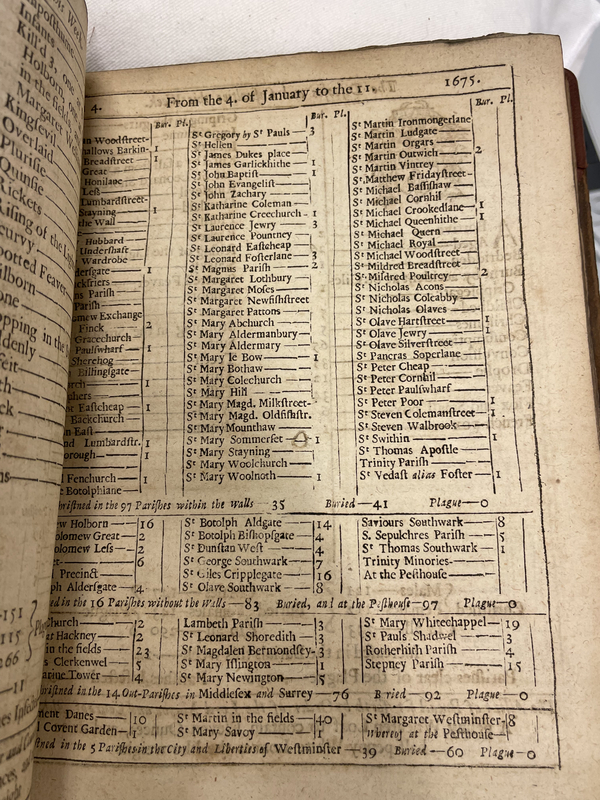 4. From the 4. of January to the 11. 1675.
Bur. Pl. Bur. Pl. Bur. Pl.
n Woodstreet-
hallows Barkin- 1
Breadstreet 1
Great
Honilane
Less
Lumbardstreet-
Stayning 1
the Wall
Hubbard
Undershaft
Wardrobe
dersgate 1
ckfriers
ns Parish
Parish
mew Exchange
Finck 2
Gracechurch
Paulswharf 1
Sherehog
Billingsgate
urch 1
phers
t Eastcheap 1
Backchurch
n East
nd Lumbardstr. 1
orough 1
l Fenchurch 1
t Botolphlane
St Gregory by St Pauls 3
St Hellen
St James Dukes place
St James Garlickhithe 1
St John Baptist 1
St John Evangelist
St John Zachary
St Katharine Coleman
St Katharine Creechurch 1
St Laurence Jewry 3
St Laurence Pountney
St Leonard Eastcheap
St Leonard Fosterlane 3
St Magnus Parish 2
St Margaret Lothbury
St Margaret Moses
St Margaret Newfishstreet
St Margaret Pattons
St Mary Abchurch
St Mary Aldermanbury
St Mary Aldermary
St Mary le Bow 1
St Mary Bothaw
St Mary Colechurch
St Mary Hill
St Mary Magd. Milkstreet-
St Mary Magd. Oldfishstr.
St Mary Mounthaw
St Mary Somerset 1
St Mary Stayning
St Mary Woolchurch
St Mary Woolnoth 1
St Martin Ironmongerlane
St Martin Ludgate
St Martin Orgars
St Martin Outwich 2
St Martin Vintrey
St. Matthew Fridaystreet-
St Michael Bassishaw
St Michael Cornhil
St Michael Crookedlane 1
St Michael Queenhithe 1
St Michael Quern
St Michael Royal
St Michael Woodstreet
St Mildred Breadstreet
St Mildred Poultrey 2
St Nicholas Acons
St Nicholas Coleabby
St Nicholas Olaves
St Olave Hartstreet 1
St Olave Jewry 1
St Olave Silverstreet
St Pancras Soperlane
St Peter Cheap
St Peter Cornhil
St Peter Paulswharf
St Peter Poor 1
St Steven Colemanstreet 1
St Steven Walbrook
St Swithin 1
St Thomas Apostle
Trinity Parish
St Vedast alias Foster 1
hristned in the 97 Parishes within the Walls — 35 Buried — 41 Plague — 0
ew Holborn 16
olomew Great 2
olomew Less 2
et- 6
Precinct
ph Aldersgate 4
St Botolph Aldgate 14
St Botolph Bishopsgate 4
St Dunstan West 4
St George Southwark 7
St Giles Cripplegate 16
St Olave Southwark 8
Saviours Southwark 8
S. Sepulchres Parish 5
St Thomas Southwark 1
Trinity Minories
At the Pesthouse
ed in the 16 Parishes without the Walls — 83 Buried, and at the Pesthouse — 97 Plague — 0
church 2
at Hackney 2
in the fields 23
s Clerkenwel 5
arine Tower 4
Lambeth Parish 3
St Leonard Shoredich 3
St Magdalen Bermondsey- 3
St Mary Islington 1
St Mary Newington 5
St Mary Whitechappel 19
St Pauls Shadwel 3
Rotherhith Parish 4
Stepney Parish 15
hristned in the 14 Out-Parishes in Middlesex and Surrey — 76 Buried — 92 Plague — 0
ment Danes 10
l Covent Garden 1
St Martin in the fields 40
St Mary Savoy 1
St Margaret Westminster- 8
Whereof at the Pesthouse
stned in the 5 Parishes in the City and Liberties of Westminster — 39 Buried — 60 Plague — 0
Kill'd 3, one
Holborn, one
in the fields
Margaret We
Kingsevil
Overlaid
Plurisie
Quinsie
Rickets
Rising of the Li
curvy
potted Feaver
opping in the
ddenly
151
115
266
11